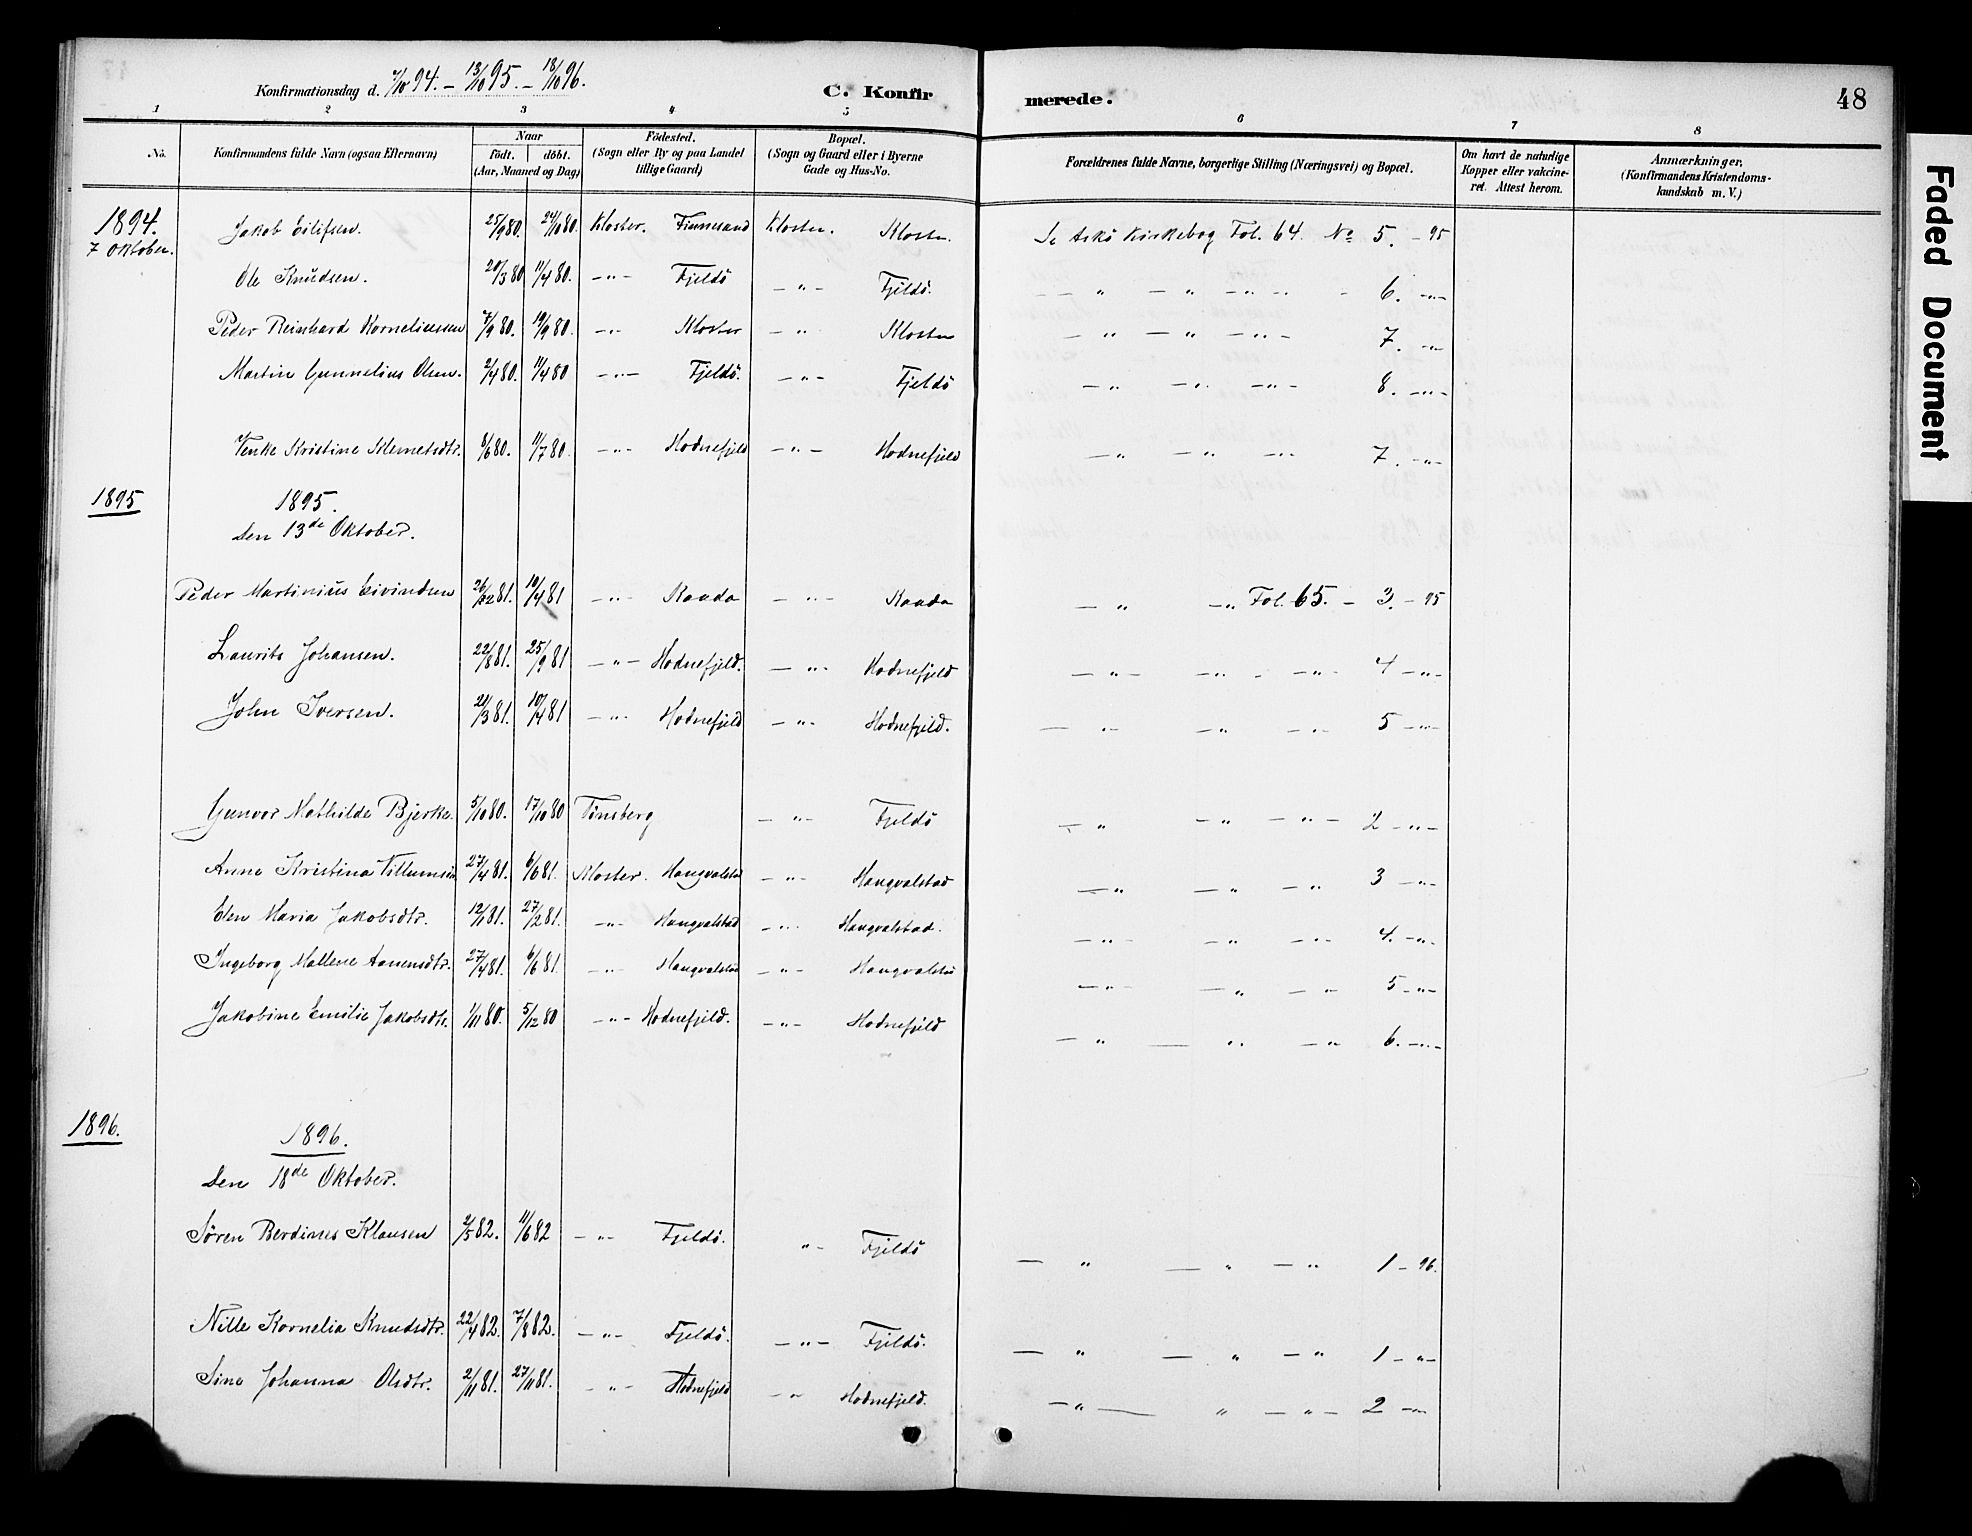 Konfirmationsdag d. 7/10 94. – 13/10 95. – 18/10 96.
C. Konfirmerede.
48
1 2 3 4 5 6 7 8
No.
Konfirmandens fulde Navn (ogsaa Efternavn)
Naar
født. | døbt.
(Aar, Maaned og Dag)
Fødested.
(Sogn eller By og paa Landet
tillige Gaard)
Bopæl.
(Sogn og Gaard eller i Byerne
Gade og Hus-No.
Forældrenes fulde Navne, borgerlige Stilling (Næringsvei) og Bopæl.
Om havt de naturlige
Kopper eller vakcine-
ret. Attest herom.
Anmærkninger,
(Konfirmandens Kristendoms-
kundskab m. V.)
1894.
7 Oktober.
Jakob Eilifsen. 25/9 80. 24/10 80. Kloster. Finnesand Kloster. Kloster. Se Askø Kirkebog Fol. 64. No 5. – 95
Ole Knudsen. 20/3 80 11/4 80. –„– Fjeldö –„– Fjeldö. – „ – „ –„– 6. –„–
Peder Reinhard Korneliussen 7/9 80. 19/9 80. –„– Kloster –„– Kloster – „ – „ –„– 7. –„–
Martin Gunnelius Olsen. 2/4 80. 11/4 80 –„– Fjeldö. –„– Fjeldö –„ –„ –„– 8. –„–
Venke Kristine Klemetsdtr. 8/6 80. 11/7 80. –„– Hodnefjeld –„– Hodnefjeld –„ –„ –„ 7. –„–
1895
1895.
Den 13de Oktober.
Peder Martinius Eivindsen 26/2 81. 10/4 81 –„– Raada –„– Raada –„ –„ Fol. 65. – 3. – 95
Laurits Johansen. 22/8 81. 25/9 81 –„– Hodnefjeld. –„– Hodnefjeld –„– –„ –„– 4 –„–
John Iversen. 21/3 81. 10/4 81 –„– Hodnefjeld –„– Hodnefjeld. – „– –„ –„– 5 –„–
Gunvor Mathilde Bjerke. 5/10 80. 17/10 80 Tönsberg –„– Fjeldö –„ –„ –„– 2 –„–
Anne Kristina Villumsdtr. 27/4 81. 6/6 81. Kloster. Haugvalstad –„– Haugvalstad –„ –„ –„ 3 –„–
Elen Maria Jakobsdtr. 12/1 81. 27/2 81. –„– Haugvalstad –„– Haugvalstad. –„– –„ –„– 4. –„–
Ingeborg Mallene Aanensdtr. 27/4 81. 6/6 81. –„– Haugvalstad –„– Haugvalstad –„– –„ –„ 5 –„–
Jakobine Emilie Jakobsdtr. 1/11 80. 5/12 80 –„– Hodnefjeld. –„– Hodnefjeld –„ – „ –„ 6. –„–
1896.
1896.
Den 18de Oktober.
Søren Berdines Klausen 2/5 82. 11/6 82 –„– Fjeldö. „– Fjeldö – „ – „ –„ 1 – 96.
Nille Kornelia Knudsdtr. 22/4 82. 7/8 82. –„– Fjeldö. –„– Fjeldö. – „ – „ –„ 1 –„–
Sine Johanna Olsdtr. 2/11 81. 27/11 81. –„– Hodnefjeld –„ Hodnefjeld. –„– „ –„– 2 –„–
Faded Document